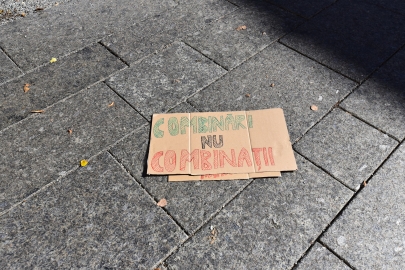 COMBINĂRI
NU
COMBINAȚII